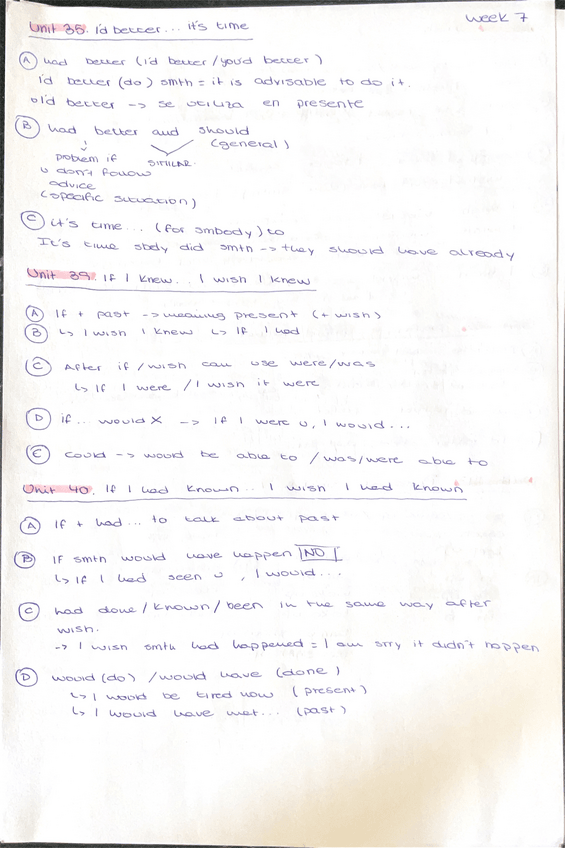 Week 7
Unit 35. I'd better... it's time
A had better (I'd better / you'd better)
I'd better (do) smth = it is advisable to do it.
I'd better -> se utiliza en presente
B had better and should
(general)
problem if SIMILAR.
u don't follow
advice
(specific situation)
C it's time... (for smbody) to
It's time sbdy did smth -> they should have already
Unit 39. If I knew.. I wish I knew
A If + past -> meaning present (+ wish)
B ↳ I wish I knew ↳ If I had
C After if / wish can use were/was
↳ If I were / I wish it were
D if.. would X -> If I were u, I would...
E could -> would be able to / was/were able to
Unit 40. If I had known.. I wish I had known
A If + had... to talk about past
B If smth would have happen NO
↳ If I had seen u, I would...
C had done / known / been in the same way after
wish.
-> I wish smth had happened = I am srry it didn't happen
D would (do) / would have (done)
↳ I would be tired now (present)
↳ I would have met... (past)